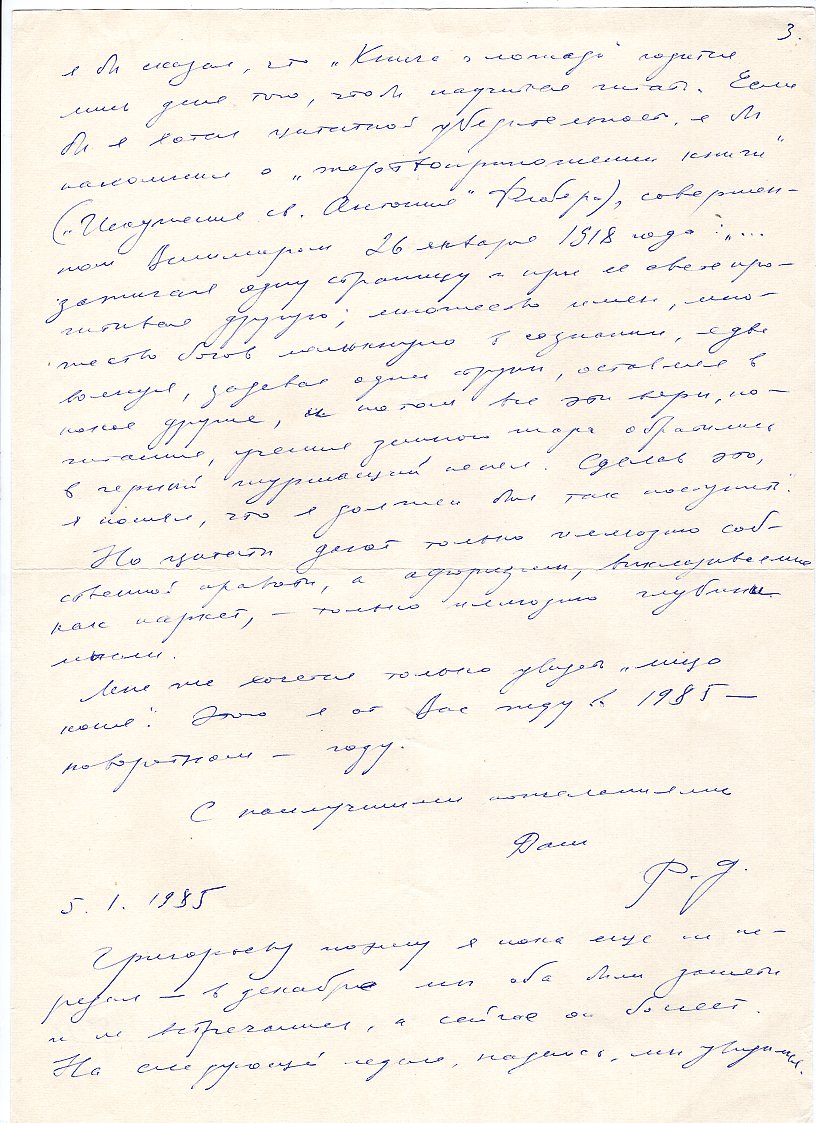 3.
я бы сказал, что „Книга о лошади" годится
лишь для того, чтобы научиться читать. Если
бы я хотел цитатной убедительности, я бы
напомнил о „жертвоприношении книги"
(„Искушение св. Антония" Флобера), совершен-
ном Велимиром 26 января 1918 года: „...
зажигая одну страницу и при ее свете про-
читывая другую; множество имен, мно-
жество богов мелькнуло в сознании, едва
волнуя, задевая одни струны, оставляя в
покое другие, и потом все эти веры, по-
читания, учения земного шара обратились
в черный шуршащий пепел. Сделав это,
я понял, что я должен был так поступить.
Но цитаты дают только иллюзию соб-
ственной правоты, а афоризмы, выкладываемые
как паркет, – только иллюзию глубины
мысли.
Мне же хочется только увидеть „лицо
коня". Этого я от Вас жду в 1985 –
поворотном – году.
С наилучшими пожеланиями
Ваш
Р. Д.
5. 1. 1985
Григорьеву поэму я пока еще не пе-
редал – в декабре мы оба были заняты
и не встречались, а сейчас он болеет.
На следующей неделе, надеюсь, мы увидимся.